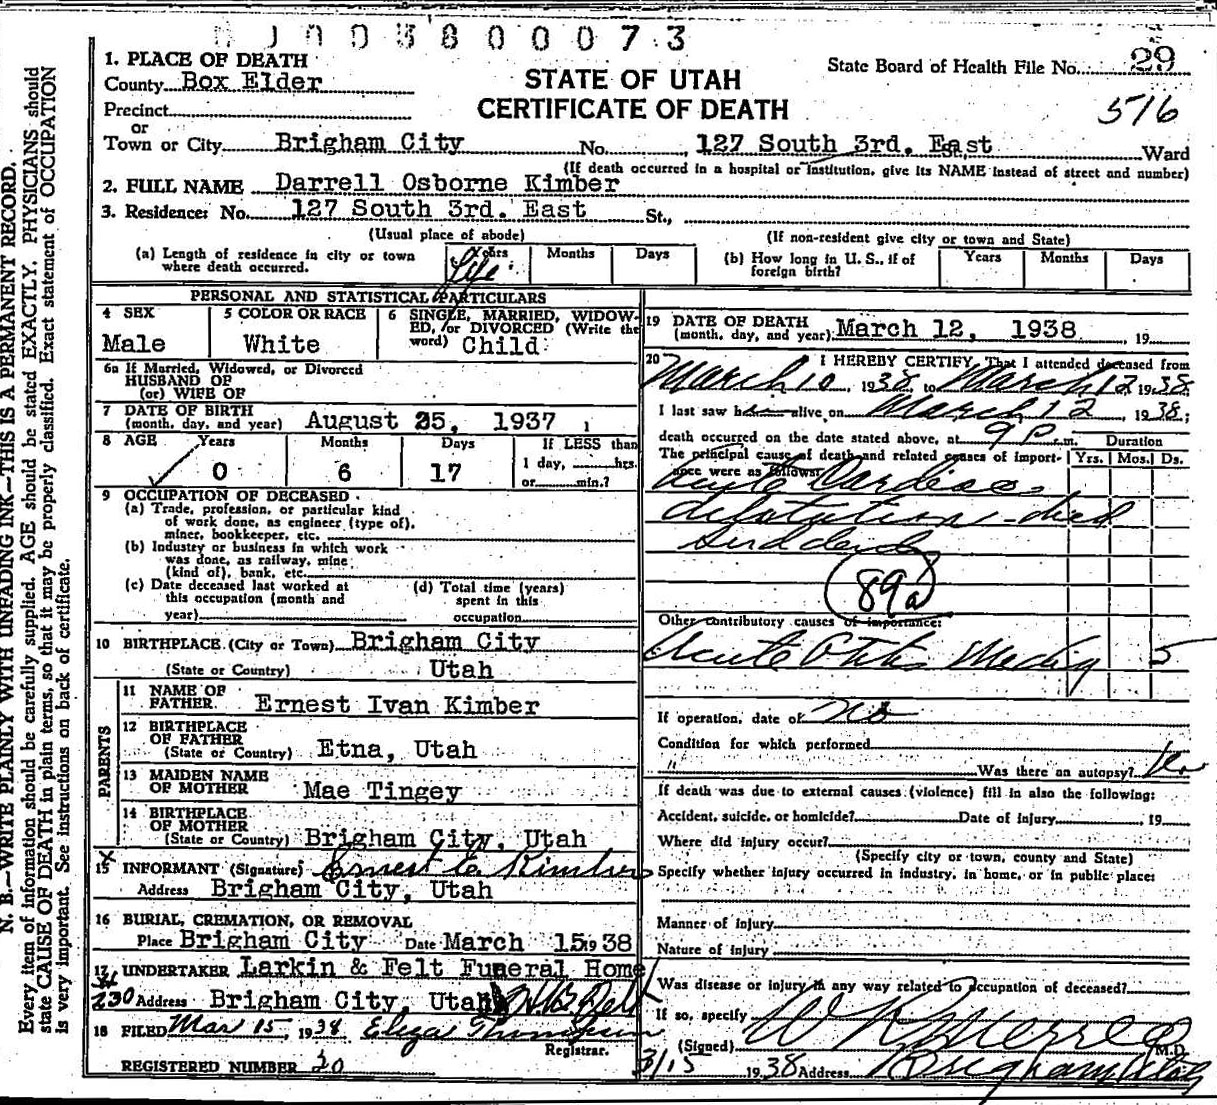 0 0 3 8 0 0 0 7 3
1. PLACE OF DEATH
County Box Elder
STATE OF UTAH
CERTIFICATE OF DEATH
State Board of Health File No. 29
516
Precinct
or
Town or City Brigham City No. , 127 South 3rd. East St., Ward
(If death occurred in a hospital or institution, give its NAME instead of street and number)
2. FULL NAME Darrell Osborne Kimber
3. Residence: No. 127 South 3rd. East St.,
(Usual place of abode) (If non-resident give city or town and State)
(a) Length of residence in city or town where death occurred. Years Life Months Days
(b) How long in U. S., if of foreign birth? Years Months Days
PERSONAL AND STATISTICAL PARTICULARS
4 SEX Male
5 COLOR OR RACE White
6 SINGLE, MARRIED, WIDOWED, or DIVORCED (Write the word) Child
6a If Married, Widowed, or Divorced
HUSBAND OF
(or) WIFE OF
7 DATE OF BIRTH
(month, day, and year) August 25, 1937
8 AGE Years Months Days If LESS than
0 6 17 1 day, hrs.
or min.?
9 OCCUPATION OF DECEASED
(a) Trade, profession, or particular kind
of work done, as engineer (type of),
miner, bookkeeper, etc.
(b) Industry or business in which work
was done, as railway, mine
(kind of), bank, etc.
(c) Date deceased last worked at
this occupation (month and
year)
(d) Total time (years)
spent in this
occupation
10 BIRTHPLACE (City or Town) Brigham City
(State or Country) Utah
PARENTS
11 NAME OF
FATHER Ernest Ivan Kimber
12 BIRTHPLACE
OF FATHER
(State or Country) Etna, Utah
13 MAIDEN NAME
OF MOTHER Mae Tingey
14 BIRTHPLACE
OF MOTHER
(State or Country) Brigham City, Utah
15 INFORMANT (Signature) Ernest Kimber
Address Brigham City, Utah
16 BURIAL, CREMATION, OR REMOVAL
Place Brigham City Date March 15 1938
17 UNDERTAKER Larkin & Felt Funeral Home
230 Address Brigham City, Utah
18 FILED Mar 15, 1938 Eliza Thompson
Registrar.
REGISTERED NUMBER 20
19 DATE OF DEATH
(month, day, and year) March 12, 1938 , 19
20 I HEREBY CERTIFY, That I attended deceased from
March 10, 1938 to March 12 1938
I last saw him alive on March 12, 1938;
death occurred on the date stated above, at 9 P m. Duration
The principal cause of death and related causes of importance were as follows: Yrs. Mos. Ds.
Acute Cardiac
dilatation - died
suddenly
89a
Other contributory causes of importance:
Acute Otitis Media 5
If operation, date of no
Condition for which performed
" Was there an autopsy?
If death was due to external causes (violence) fill in also the following:
Accident, suicide, or homicide? Date of injury 19
Where did injury occur?
(Specify city or town, county and State)
Specify whether injury occurred in industry, in home, or in public place:
Manner of injury
Nature of injury
Was disease or injury in any way related to occupation of deceased?
If so, specify
(Signed) M.D.
3/15 1938 Address Brigham Utah
N. B.—WRITE PLAINLY WITH UNFADING INK—THIS IS A PERMANENT RECORD.
Every item of information should be carefully supplied. AGE should be stated EXACTLY. PHYSICIANS should
state CAUSE OF DEATH in plain terms, so that it may be properly classified. Exact statement of OCCUPATION
is very important. See instructions on back of certificate.